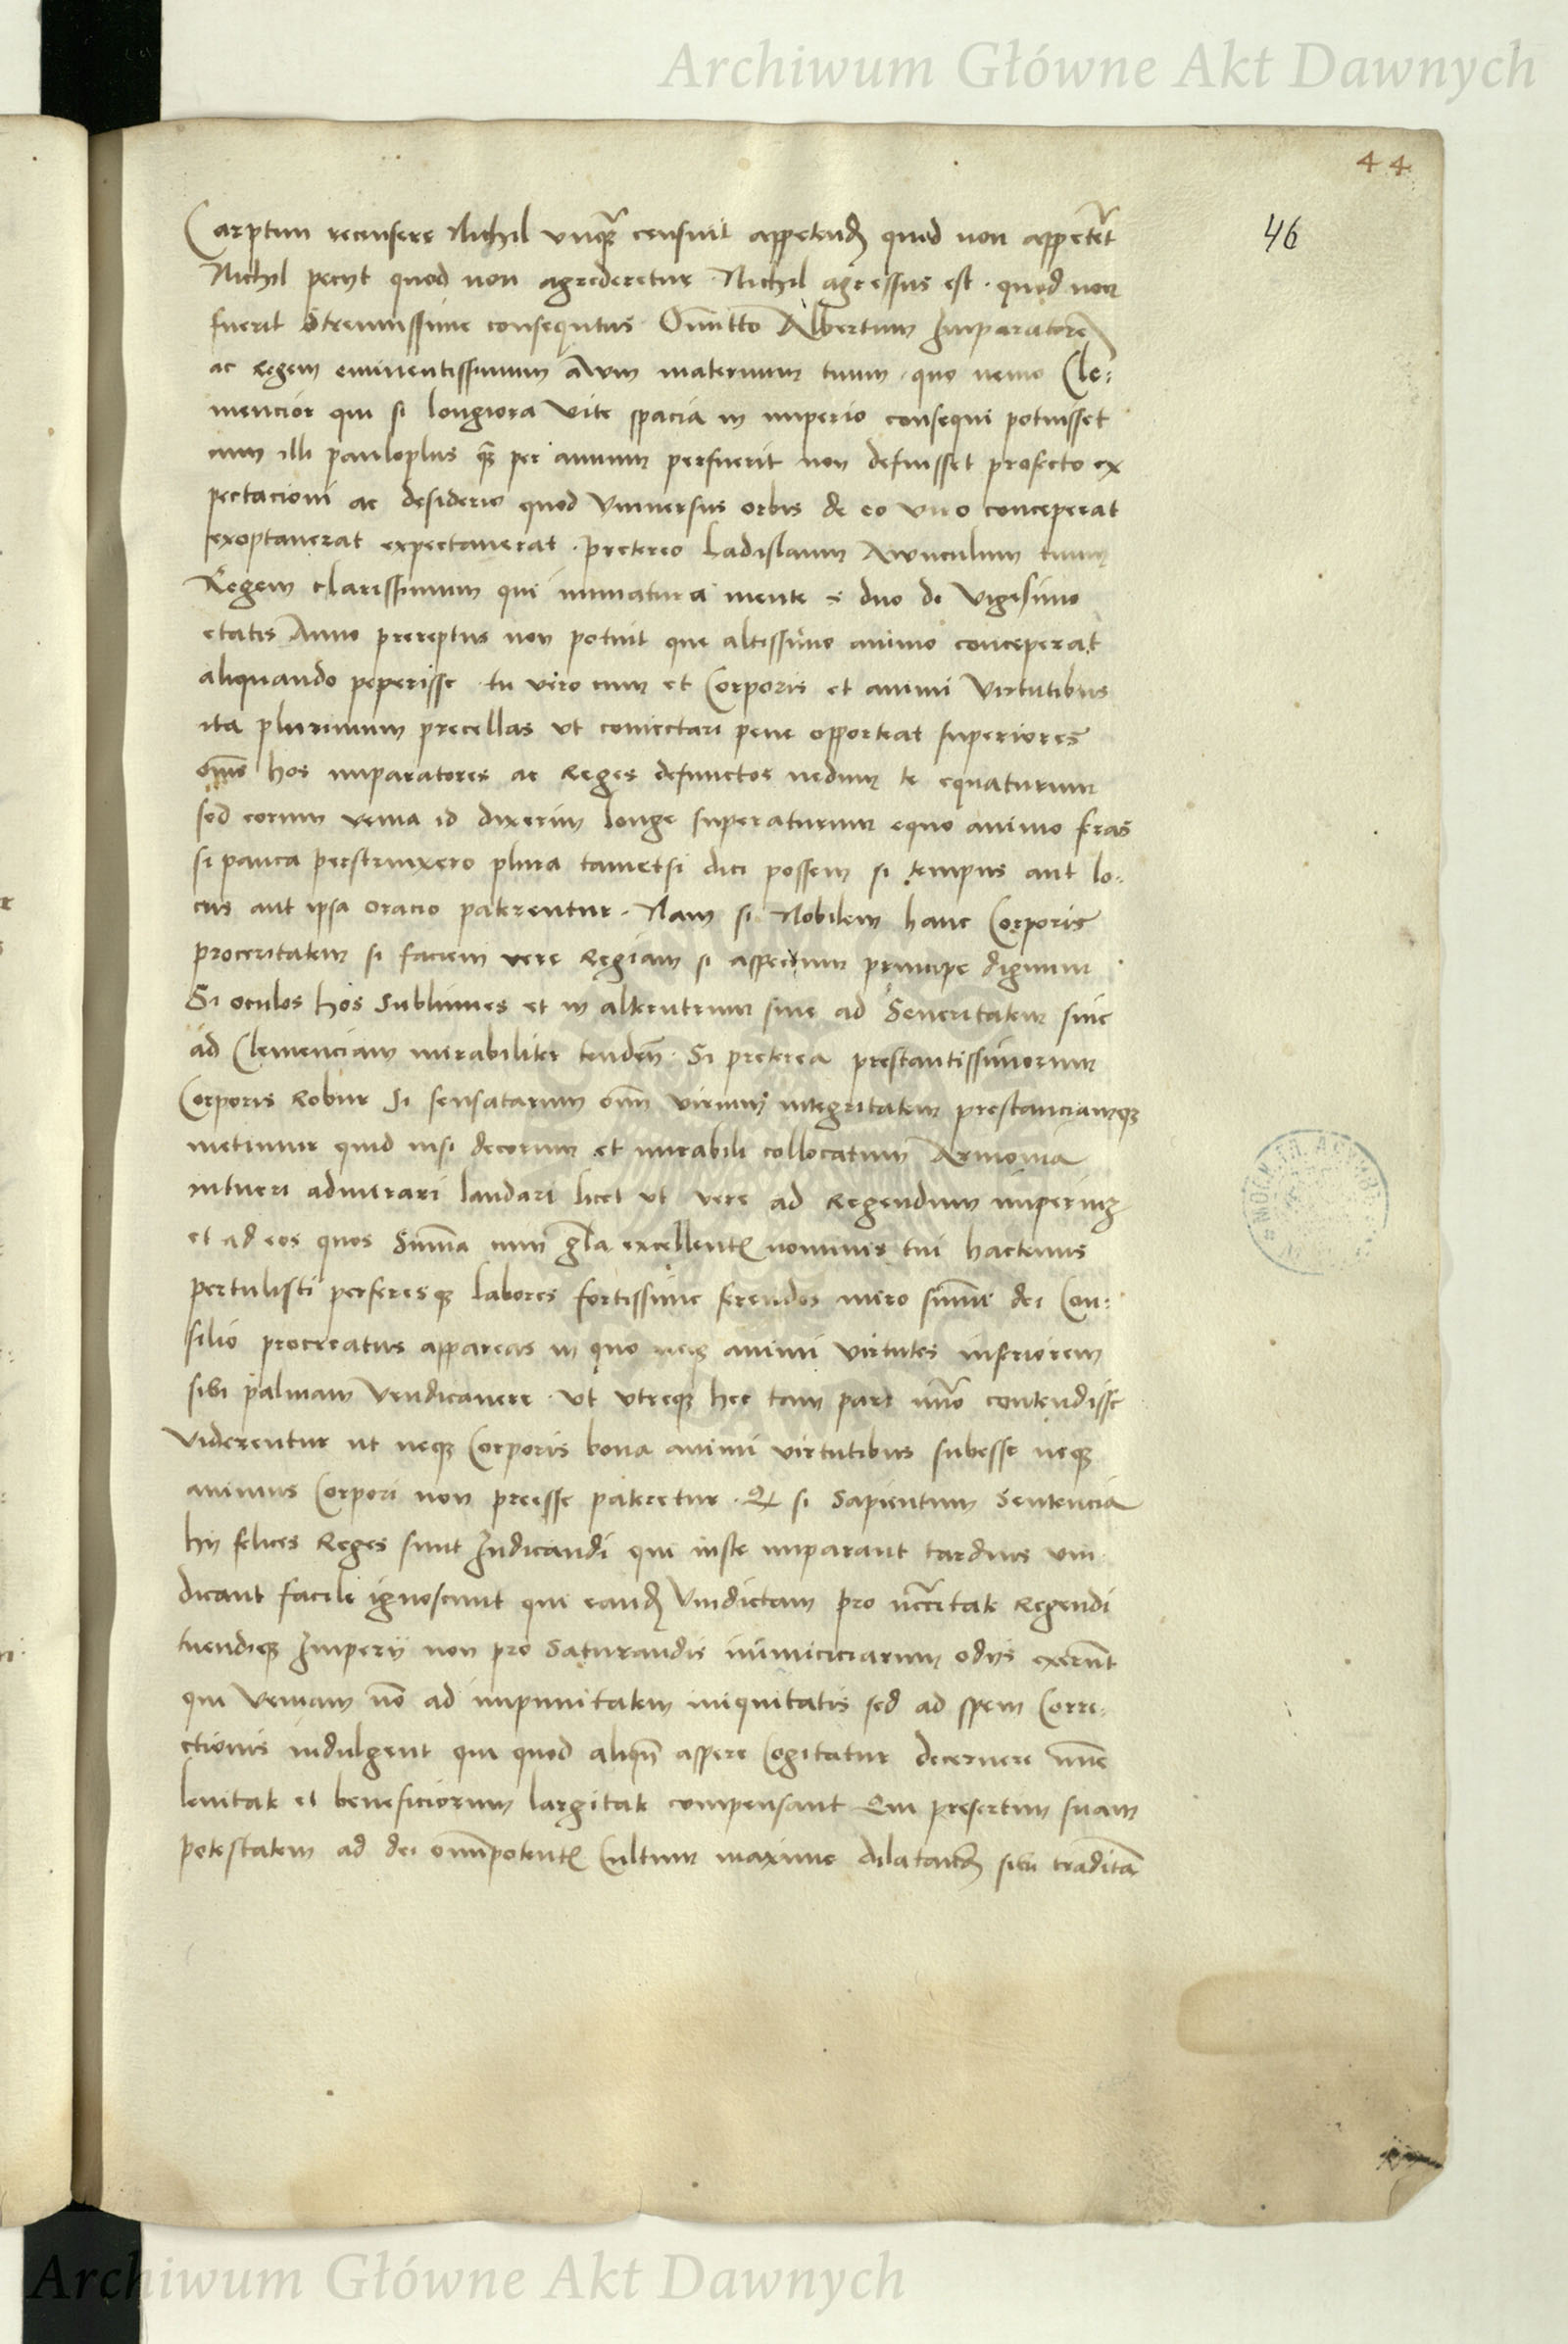 Archiwum Główne Akt Dawnych
44
46
Carptim recensere Nichil unq̄ censuit appetendū quod non appetēt
Nichil pecijt quod non agrederetur · Nichil agressus est · quod non
fuerit Strenuissime consequtus · Omitto Albertum Imparatorē
ac Regem eminentissimum Awm maternum tuum · quo nemo Cle:
mencior qui si longiora vite spacia in imperio consequi potuisset
cum illi pauloplus q̄ per annum perfuerit non defuisset profecto ex
pectacioni ac desiderio quod Vniuersus orbis de eo vno conceperat
exoptauerat expectauerat · pretereo Ladislaum Awnculum tuum
Regem clarissimum qui immatura mente duo de vigesimo
etatis Anno prereptus non potuit que altissimo animo conceperat
aliquando peperisse · tu vero cum et Corporis et animi Virtutibus
ita plurimum precellas vt coniectari pene opporteat superiores
om̄s hos imparatores ac Reges defunctos nedum te equaturum
sed eorum venia id dixerim longe superaturum equo animo feras
si pauca perstrinxero plura tametsi dici possem si tempus aut lo:
cus aut ipsa oracio paterentur · Nam si Nobilem hanc Corporis
proceritatem si faciem vere Regiam si aspectum principe dignum
Si oculos hos sublimes et in alterutrum siue ad Seueritatem siue
ad Clemenciam mirabiliter tendēn · Si preterea prestantissimorum
Corporis Robur Si sensatarum om̄ virium integritatem prestanciamq
metimur quid nisi decorum et mirabili collocatum Armonia
intueri admirari laudari licet vt vere ad Regendum imperiuʒ
et ad eos quos Sūma cum gl̄a excellentis nominis tui hactenus
pertulisti perferesq labores fortissime ferendos miro sūmi dei Con:
silio procreatus appareas in quo animi virtutes inferiorem
sibi palmam Vendicauere · vt vtreque hec tam pari contendisse
viderentur ut neq Corporis bona animi virtutibus subesse neq
animus Corpori non preesse pateretur · Qͦ si Sapientum Sentencia
hij felices Reges sunt Iudicandi qui iuste imparant tardius vin
dicant facile ignoscunt qui eandē Vindictam pro nccītate Regendi
tuendiq Imperij non pro Saturandis inimiciciarum odijs exerūt
qui veniam nō ad impunitatem iniquitatis sed ad spem Corre:
ctionis indulgent qui quod aliqn̄ aspere Cogitatur decernere
lenitate et beneficiorum largitate compensant Qui presertim suam
potestatem ad dei om̄ipotentis Cultum maxime dilatandū sibi traditā
Archiwum Główne Akt Dawnych